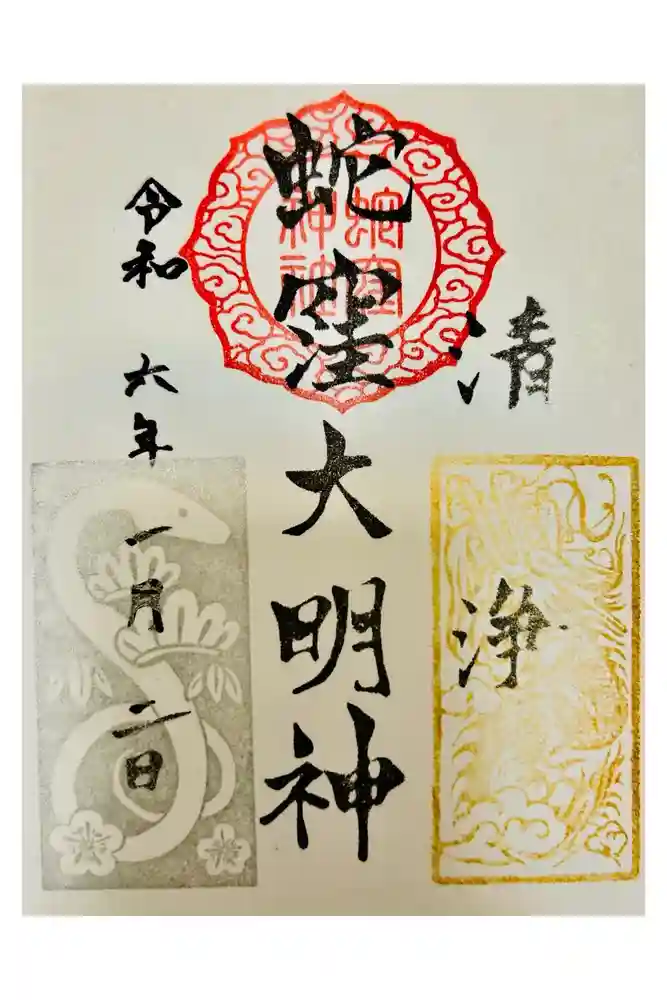 清
浄
蛇窪大明神
蛇窪
神社
令和六年一月二日